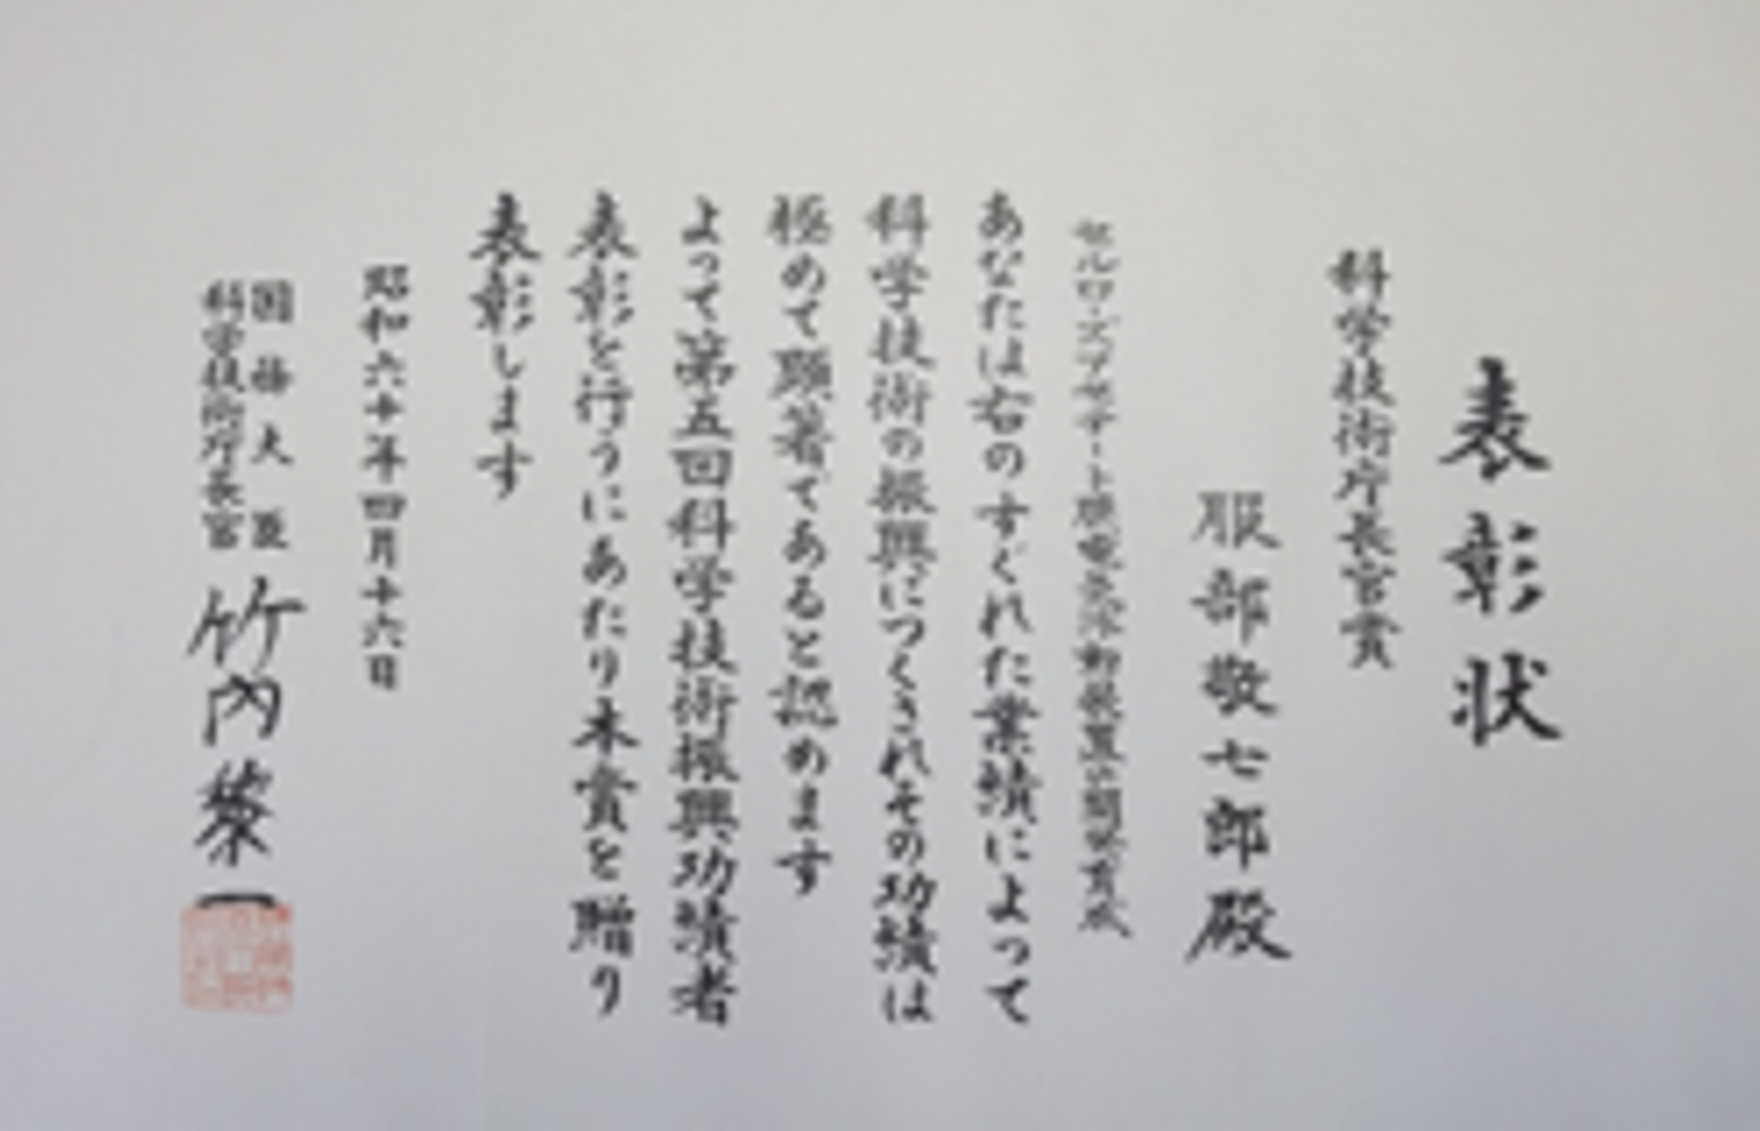 表彰状
科学技術庁長官賞
服部敬七郎殿
セルロースアセテート膜電気泳動装置の開発育成
あなたは右のすぐれた業績によって
科学技術の振興につくされその功績は
極めて顕著であると認めます
よって第五回科学技術振興功績者
表彰を行うにあたり本賞を贈り
表彰します
昭和六十年四月十六日
国務大臣
科学技術庁長官
竹内黎一